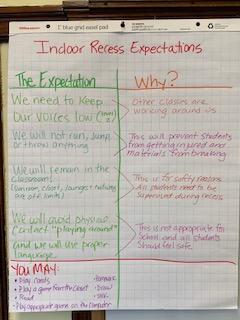 1" blue grid easel pad
Indoor Recess Expectations
The Expectation
Why?
We need to keep
our voices low (level 2)
Other classes are
working around us
We will not run, jump
or throw anything
This will prevent students
from getting injured and
materials from breaking
We will remain in the
classroom!
(Bathroom, closet, lounges + hallway
are off limits!)
This is for safety reasons
All students need to be
supervised during recess
We will avoid physical
contact "playing around"
and we will use proper
language.
This is not appropriate for
school and all students
should feel safe.
You MAY:
• Play cards
• Play a game from the closet
• Read
• Play appropriate game on the computer
• Homework
• Draw
• Talk